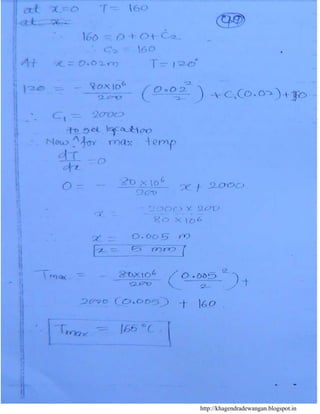 at x=0 T= 160
49
at x=
160 = 0+0+C2
∴ C2 = 160
At x=0.02m T=120°
120 = - 80x10^6/200 (0.02^2/2) + C1(0.02)+160
∴ C1 = 2000
to get location
Now ^ for max temp
dT/dx =0
0= - 80x10^6/200 x + 2000
x = - 2000 x 200 / 80 x 10^6
x = 0.005 m
x = 5 mm
Tmax = - 80x10^6/200 (0.005^2/2) +
2000 (0.005) + 160
Tmax = 165°C.
http://khagendradewangan.blogspot.in